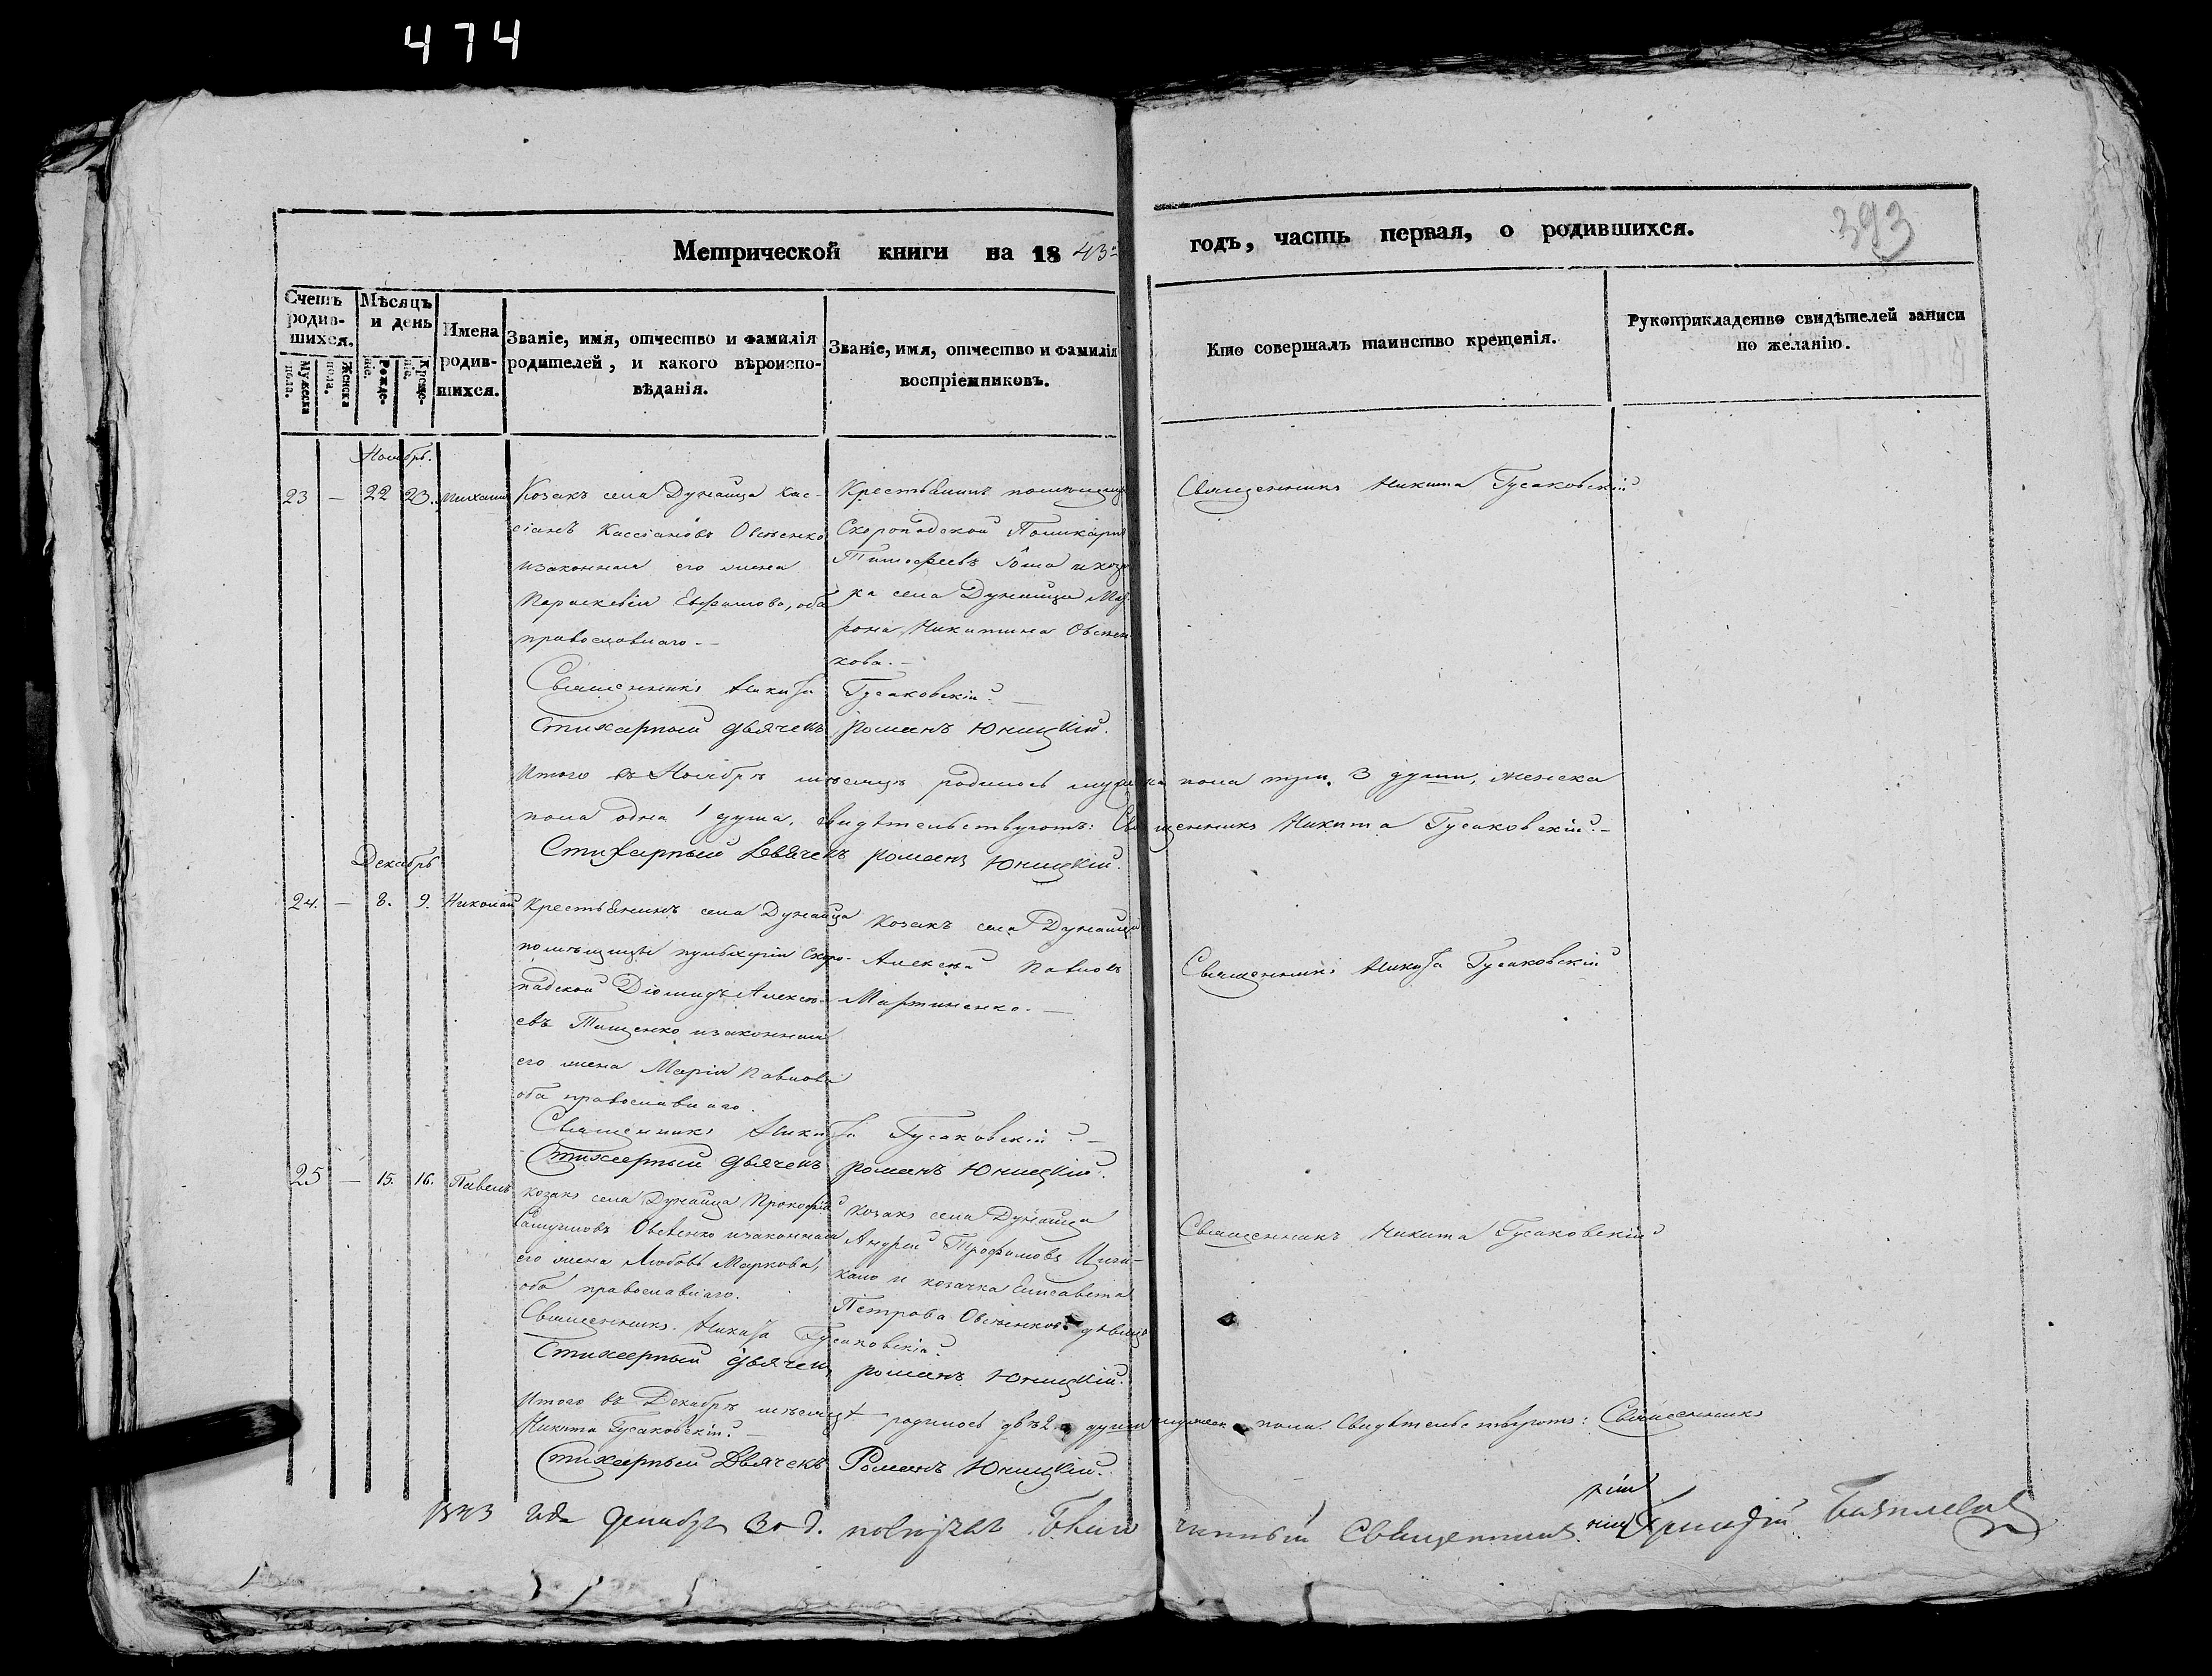 474
393
Метрической книги на 1843 годъ, часть первая, о родившихся.
Счетъ родившихся.
Мужеска пола.
Женска пола.
Мѣсяцъ и день
Рожденіе.
Крещеніе.
Имена родившихся.
Званіе, имя, отчество и фамилія родителей, и какого вѣроисповѣданія.
Званіе, имя, отчество и фамилія воспріемниковъ.
Кто совершалъ таинство крещенія.
Рукоприкладство свидѣтелей записи по желанію.
Ноябрь.
23 — 22 23. Михаилъ
Козакъ села Дунайца Кас-
сіанъ Кассіановъ Овсѣенко
и законная его жена
Параскевія Евфимова, оба
православнаго. —
Крестьянинъ помѣщицы
Скоропадской Поликарпъ
Тимофеевъ и коза
ка села Дунайца Мат
рона Никитина Овсѣен
кова. —
Священникъ Никита Гусаковскій
Священникъ Никита Гусаковскій. —
Стихарный дьячекъ Романъ Юницкій.
Итого въ Ноябрѣ мѣсяцѣ родилось мужеска пола три 3 души, женска
пола одна 1 душа. свидѣтельствуютъ: Священникъ Никита Гусаковскій. —
Стихарный Дьячекъ Романъ Юницкій.
Декабрь
24. — 8. 9. Николай
Крестьянинъ села Дунайца
помѣщицы Пульхеріи Скоро-
падской Діомидъ Алексѣ-
евъ Тищенко и законная
его жена Марія Павлова
оба православнаго.
Козакъ села Дунайца
Алексѣй Павловъ
Мартиненко. —
Священникъ Никита Гусаковскій
Священникъ Никита Гусаковскій. —
Стихарный дьячекъ Романъ Юницкій.
25 — 15. 16. Павелъ
Козакъ села Дунайца Прокофій
Самуиловъ Овсѣенко и законная
его жена Любовь Маркова,
оба православнаго.
Козакъ села Дунайца
Андрей Трофимовъ
и козачка Елисавета
Петрова Овсѣенкова дѣвица
Священникъ Никита Гусаковскій
Священникъ Никита Гусаковскій.
Стихарный дьячекъ Романъ Юницкій.
Итого въ Декабрѣ мѣсяцѣ родилось двѣ 2 души мужеска пола. Свидѣтельствуютъ: Священникъ
Никита Гусаковскій. —
Стихарный Дьячекъ Романъ Юницкій.
1843 года декабря 30 д. Благочинный Священникъ